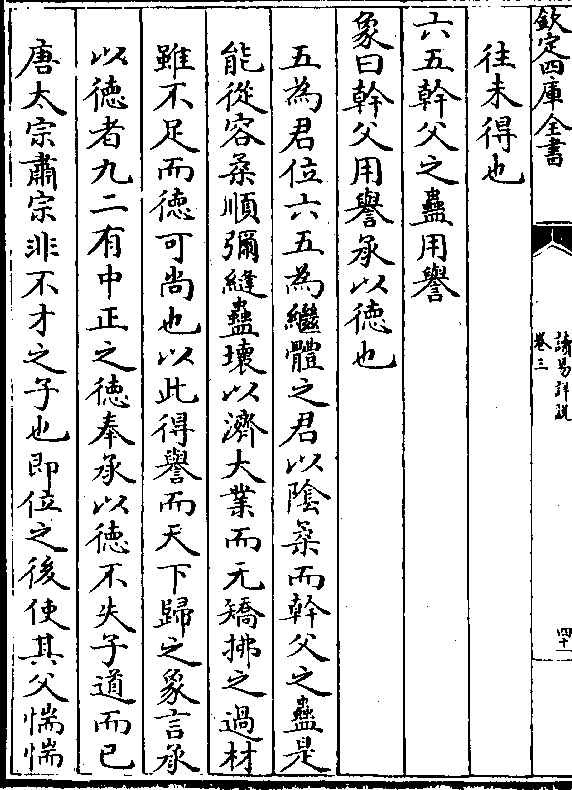 欽定四庫全書
讀易詳說
卷三
四十
往未得也
六五幹父之蠱用譽
象曰幹父用譽承以德也
五為君位六五為繼體之君以陰柔而幹父之蠱是
能從容柔順彌縫蠱壞以濟大業而无矯拂之過材
雖不足而德可尚也以此得譽而天下歸之象言承
以德者九二有中正之德奉承以德不失子道而已
唐太宗肅宗非不才之子也即位之後使其父惴惴